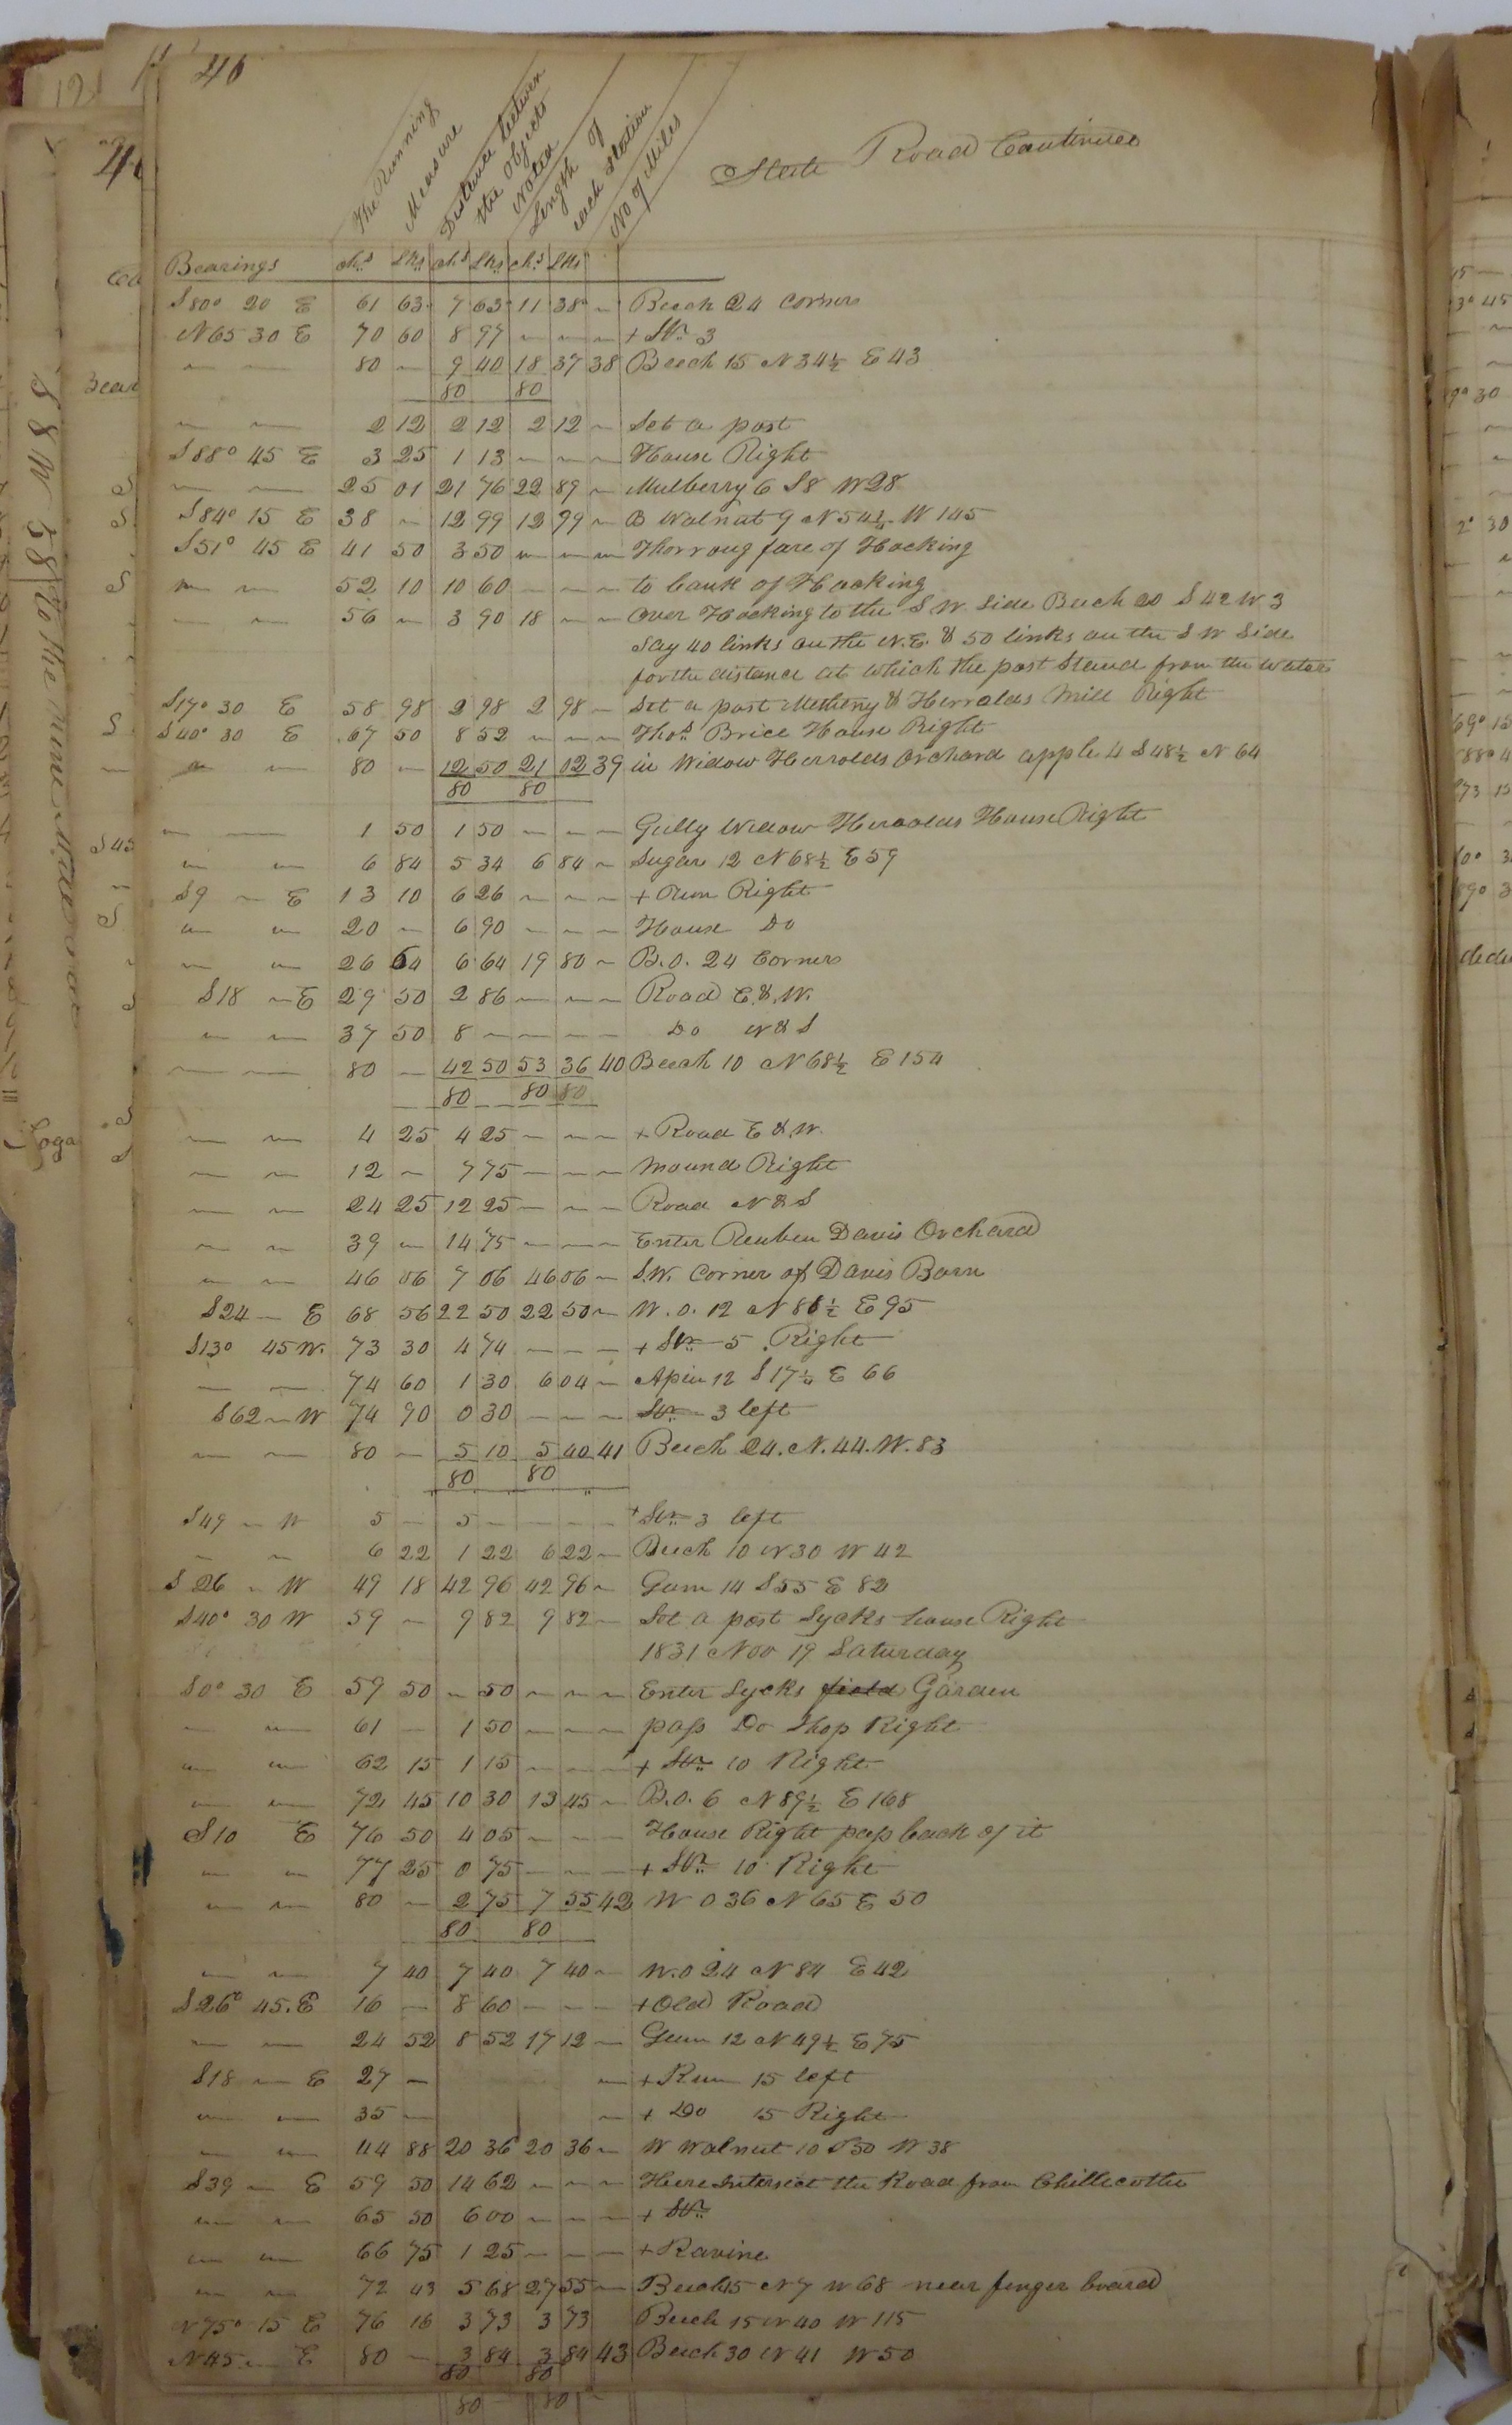 46
The Running Measure
Distance between the Objects Noted
Length of each Station
No of Miles
State Road Continued
Bearings chs Lks chs Lks chs Lks
S80° 20 E 61 63 7 63 11 38 ~ Beech 24 corners
N65 30 E 70 60 8 97 ~ ~ ~ + Str 3
~ ~ 80 ~ 9 40 18 37 38 Beech 15 N34½ E43
80 80
~ ~ 2 12 2 12 2 12 ~ Set a post
S88° 45 E 3 25 1 13 ~ ~ ~ House Right
~ ~ 25 01 21 76 22 89 ~ Mulberry 6 S8 W28
S84° 15 E 38 ~ 12 99 12 99 ~ B Walnut 9 N54¼ W 145
S51° 45 E 41 50 3 50 ~ ~ ~ Thorroug fare of Hocking
~ ~ 52 10 10 60 ~ ~ ~ to bank of Hocking
~ ~ 56 ~ 3 90 18 ~ ~ over Hocking to the S W side Beech 20 S42 W 3
Say 40 links on the N.E. & 50 links on the S W Side
for the distance at which the post Stand from the water
S17° 30 E 58 98 2 98 2 98 ~ Set a post Metheny & Herrolds Mill Right
S40° 30 E 67 50 8 52 ~ ~ ~ Thos Brice House Right
~ ~ 80 ~ 12 50 21 02 39 in Widow Herrolds Orchard apple 4 S48½ N 64
80 80
~ ~ 1 50 1 50 ~ ~ ~ Gully Widow Herrolds House Right
~ ~ 6 84 5 34 6 84 ~ Sugar 12 N68½ E59
S9 ~ E 13 10 6 26 ~ ~ ~ + Run Right
~ ~ 20 ~ 6 90 ~ ~ ~ House Do
~ ~ 26 64 6 64 19 80 ~ B.O. 24 Corners
S18 ~ E 29 50 2 86 ~ ~ ~ Road E & W.
~ ~ 37 50 8 ~ ~ ~ ~ Do N & S
~ ~ 80 ~ 42 50 53 36 40 Beech 10 N68½ E 154
80 80 80
~ ~ 4 25 4 25 ~ ~ ~ + Road E & W.
~ ~ 12 ~ 7 75 ~ ~ ~ Mound Right
~ ~ 24 25 12 25 ~ ~ ~ Road N & S
~ ~ 39 ~ 14 75 ~ ~ ~ Enter Reuben Davis Orchard
~ ~ 46 06 7 06 46 06 ~ S.W. Corner of Davis Barn
S24 ~ E 68 56 22 50 22 50 ~ W.O. 12 N86½ E 95
S13° 45 W. 73 30 4 74 ~ ~ ~ + Str 5 Right
~ ~ 74 60 1 30 6 04 ~ Apin 12 S17¼ E 66
S62 ~ W 74 90 0 30 ~ ~ ~ Str 3 left
~ ~ 80 ~ 5 10 5 40 41 Beech 24. N. 44. W. 83
80 80
S49 ~ W 5 ~ 5 ~ ~ ~ ~ + Str 3 left
~ ~ 6 22 1 22 6 22 ~ Beech 10 N30 W 42
S26 ~ W 49 18 42 96 42 96 ~ Gum 14 S55 E 82
S40° 30 W 59 ~ 9 82 9 82 ~ Set a post Sycks house Right
1831 Nov 19 Saturday
S0° 30 E 59 50 ~ 50 ~ ~ ~ Enter Sycks field Garden
~ ~ 61 ~ 1 50 ~ ~ ~ pass Do Shop Right
~ ~ 62 15 1 15 ~ ~ ~ + Str 10 Right
~ ~ 72 45 10 30 13 45 ~ B.O. 6 N89½ E 168
S10 E 76 50 4 05 ~ ~ ~ House Right pass back of it
~ ~ 77 25 0 75 ~ ~ ~ + Str 10 Right
~ ~ 80 ~ 2 75 7 55 42 W O 36 N65 E 50
80 80
~ ~ 7 40 7 40 7 40 ~ W.O 24 N84 E42
S26° 45. E 16 ~ 8 60 ~ ~ ~ + Old Road
~ ~ 24 52 8 52 17 12 ~ Gum 12 N49½ E75
S18 ~ E 27 ~ ~ + Run 15 left
~ ~ 35 ~ ~ + Do 15 Right
~ ~ 44 88 20 36 20 36 ~ W Walnut 10 S50 W 38
S39 ~ E 59 50 14 62 ~ ~ ~ Here Intersect the Road from Chillecothe
~ ~ 65 50 6 00 ~ ~ ~ + Str
~ ~ 66 75 1 25 ~ ~ ~ + Ravine
~ ~ 72 43 5 68 27 55 ~ Beech 15 N7 W68 near finger board
N75° 15 E 76 16 3 73 3 73 Beech 15 N40 W 115
N45 ~ E 80 ~ 3 84 3 84 43 Beech 30 N41 W50
80 80
80 80